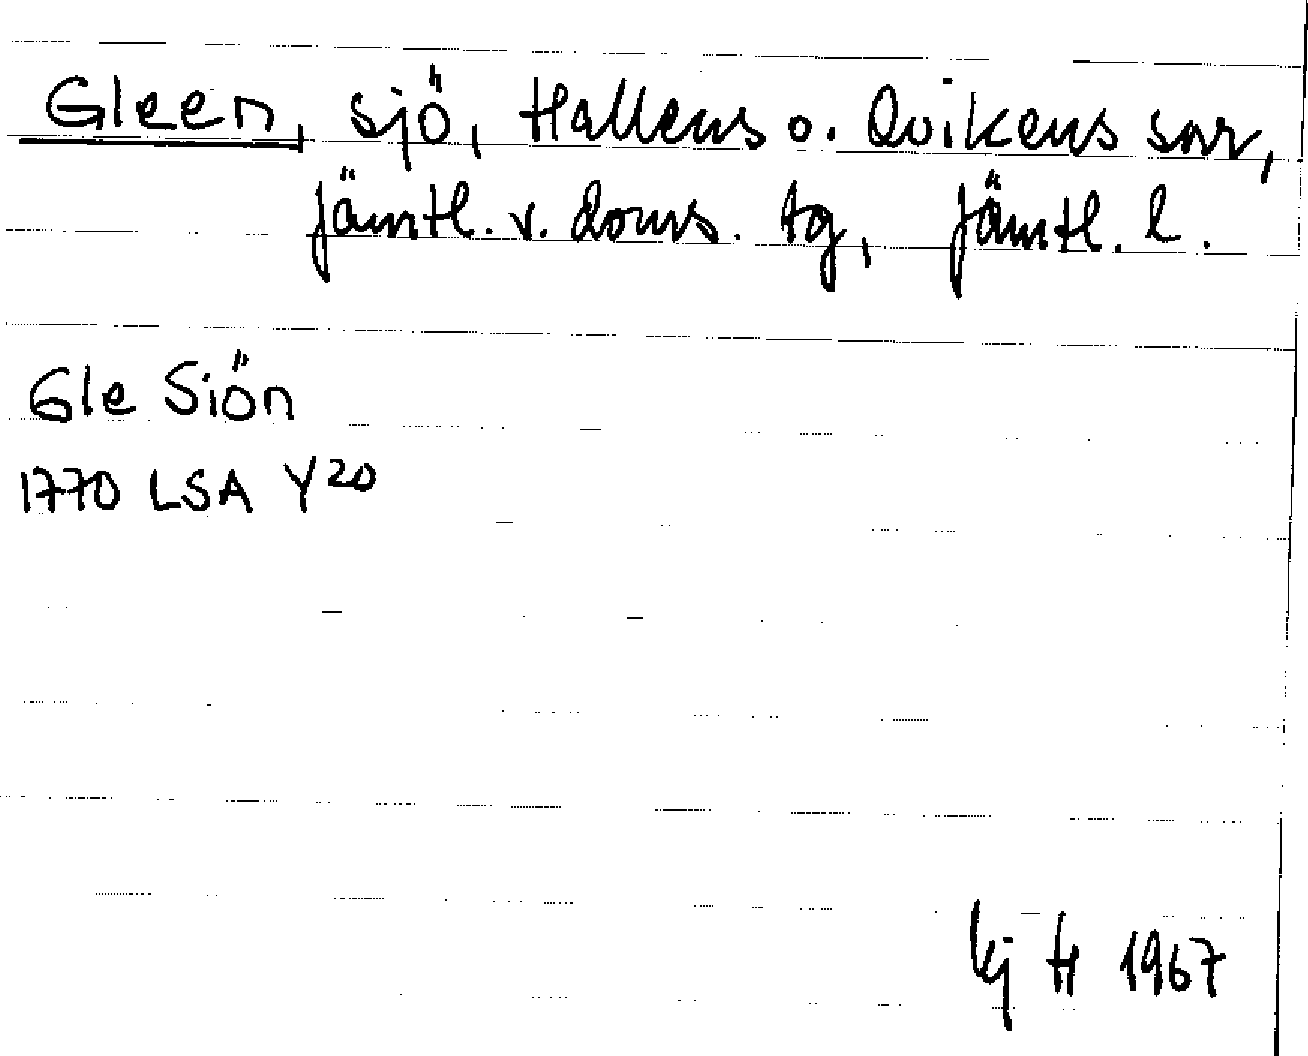 Gleen, sjö, Hallens o. Ovikens snr,
Jämtl. v. doms. tg, Jämtl. l.
Gle Siön
1770 LSA Y20
kj H 1967